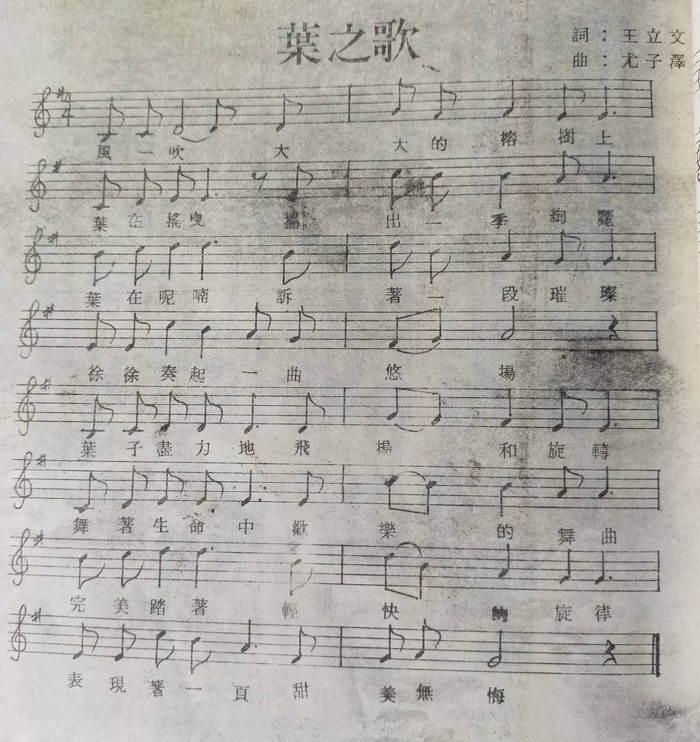 葉之歌
詞：王立文
曲：尤子澤
風一吹大大的榕樹上
葉在搖曳搖出一季絢麗
葉在呢喃訴著一段璀璨
徐徐奏起一曲悠揚
葉子盡力地飛揚和旋轉
舞著生命中歡樂的舞曲
完美踏著輕快的旋律
表現著一頁甜美無悔